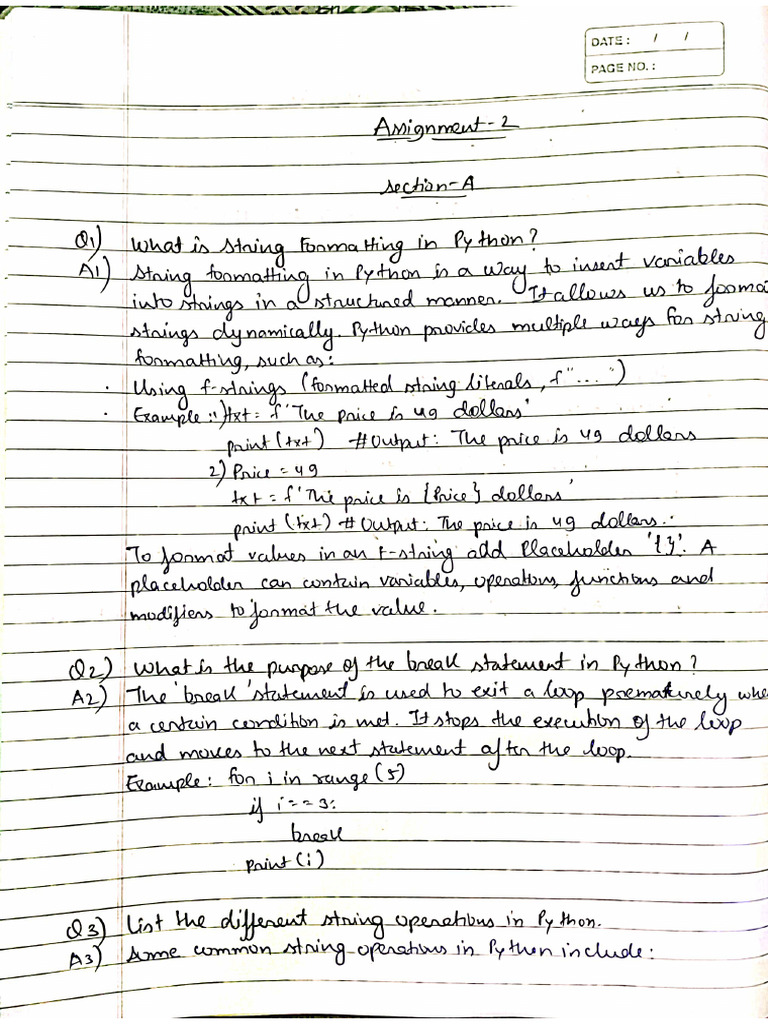 DATE: / /
PAGE NO.:
Assignment-2
Section-A
Q1) What is String Formatting in Python?
A1) String formatting in Python is a way to insert variables
into strings in a structured manner. It allows us to forma
strings dynamically. Python provides multiple ways for string
formatting, such as:
· Using f-strings (formatted string literals, f"...")
· Example: 1) txt = f'The price is 49 dollars'
print(txt) #Output: The price is 49 dollars
2) Price = 49
txt = f'The price is {Price} dollars'
print(txt) #Output: The price is 49 dollars.
To format values in an f-string add Placeholder '{}'. A
placeholder can contain variables, operations, functions and
modifiers to format the value.
Q2) What is the purpose of the break statement in Python?
A2) The 'break' statement is used to exit a loop prematurely whe
a certain condition is met. It stops the execution of the loop
and moves to the next statement after the loop.
Example: for i in range(5)
if i == 3:
break
print(i)
Q3) List the different string operations in Python.
A3) Some common string operations in Python include: